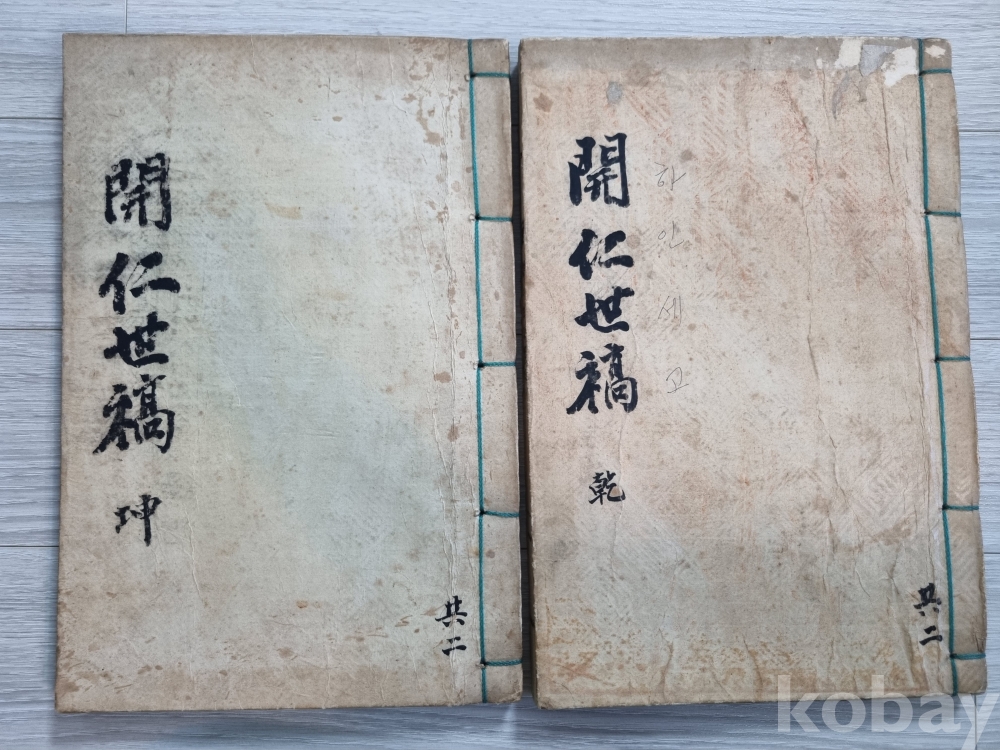 開仁世稿 乾
하안세고
共二
開仁世稿 坤
共二
kobay